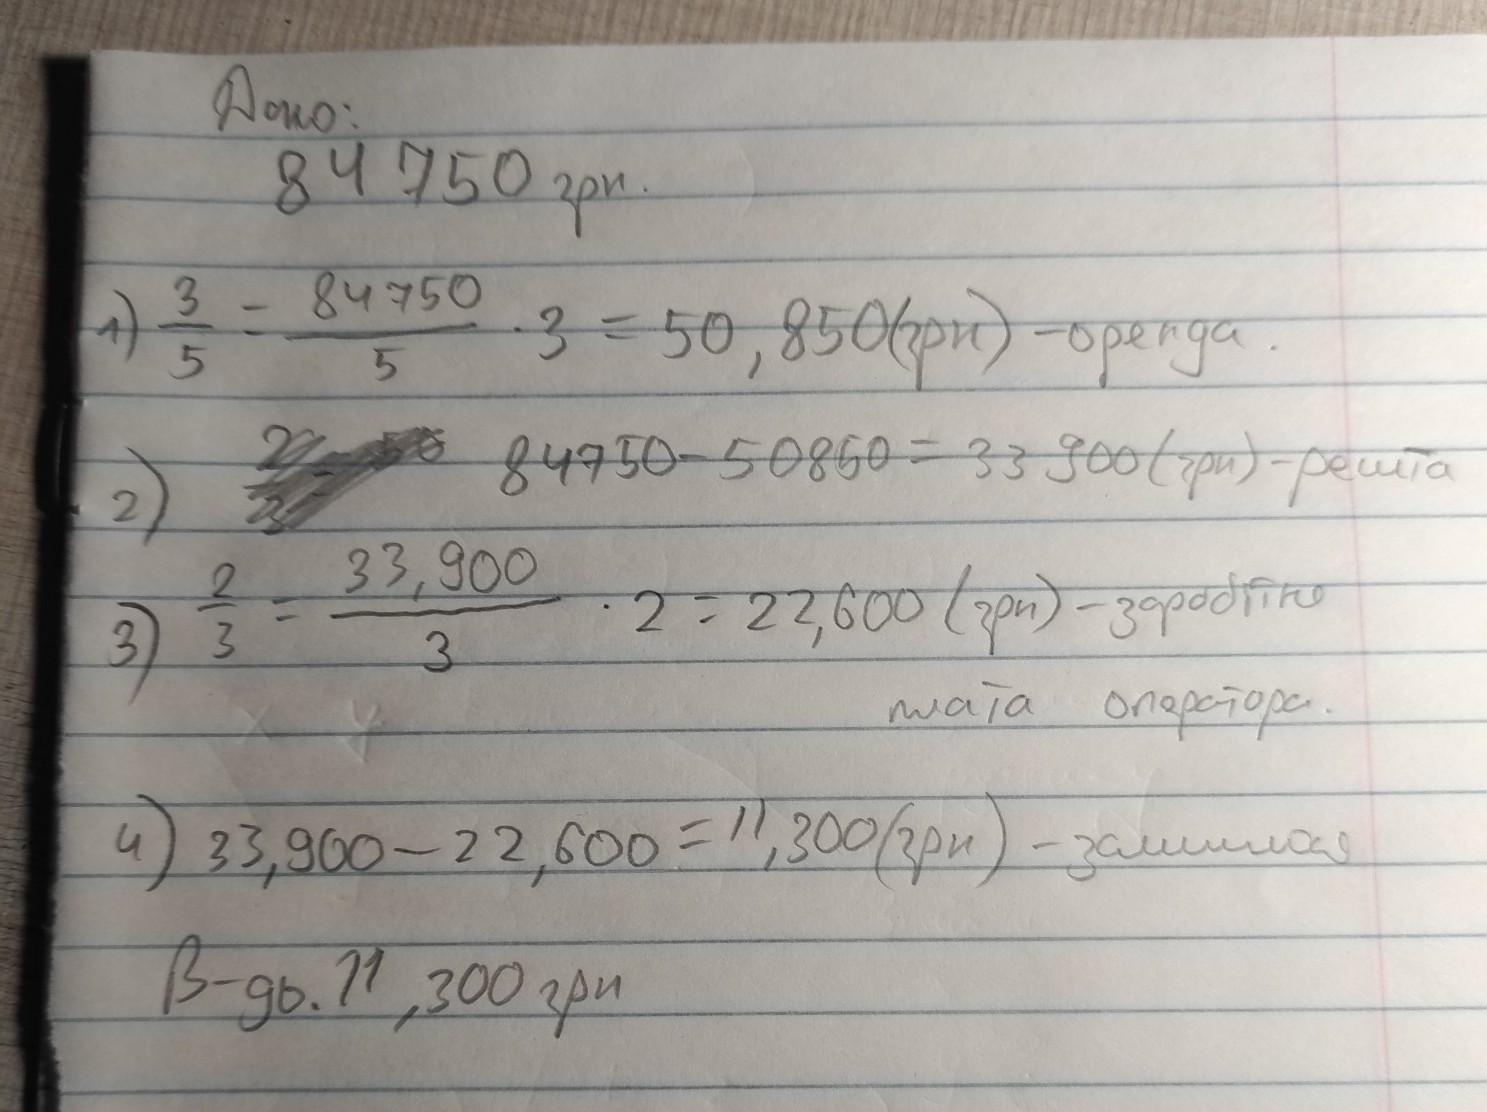 Дано:
84 750 грн.
1) 3/5 = 84750/5 · 3 = 50,850(грн) - оренда.
2) 84750 - 50850 = 33 900(грн) - решта
3) 2/3 = 33,900/3 · 2 = 22,600 (грн) - заробітна
плата оператора.
x y
4) 33,900 - 22,600 = 11,300(грн) - залишилось
В-дь. 11,300 грн